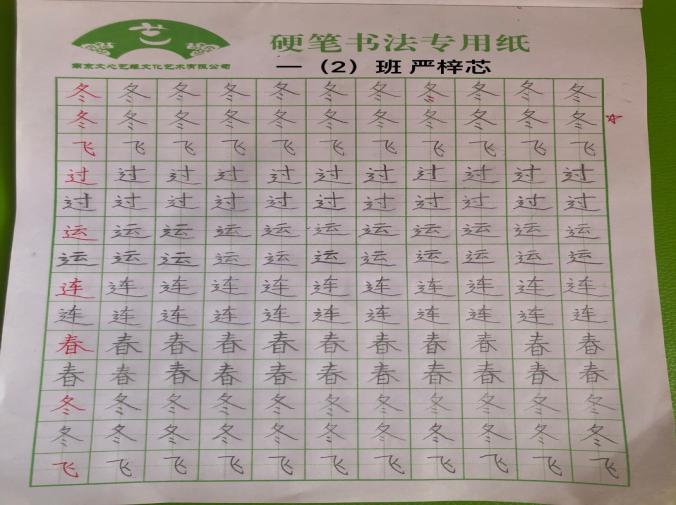 艺
南京文心艺雕文化艺术有限公司
硬笔书法专用纸
一（2）班 严梓芯
冬冬冬冬冬冬冬冬冬冬冬
冬冬冬冬冬冬冬冬冬冬冬
飞飞飞飞飞飞飞飞飞飞飞
过过过过过过过过过过过
过过过过过过过过过过过
运运运运运运运运运运运
运运运运运运运运运运运
连连连连连连连连连连连
连连连连连连连连连连连
春春春春春春春春春春春
春春春春春春春春春春春
冬冬冬冬冬冬冬冬冬冬冬
冬冬冬冬冬冬冬冬冬冬冬
飞飞飞飞飞飞飞飞飞飞飞